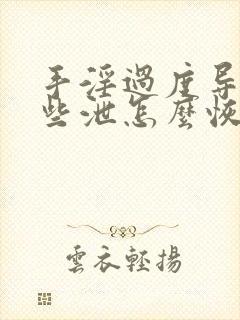 手淫過度导
些泄怎麼恢
雲衣輕揚